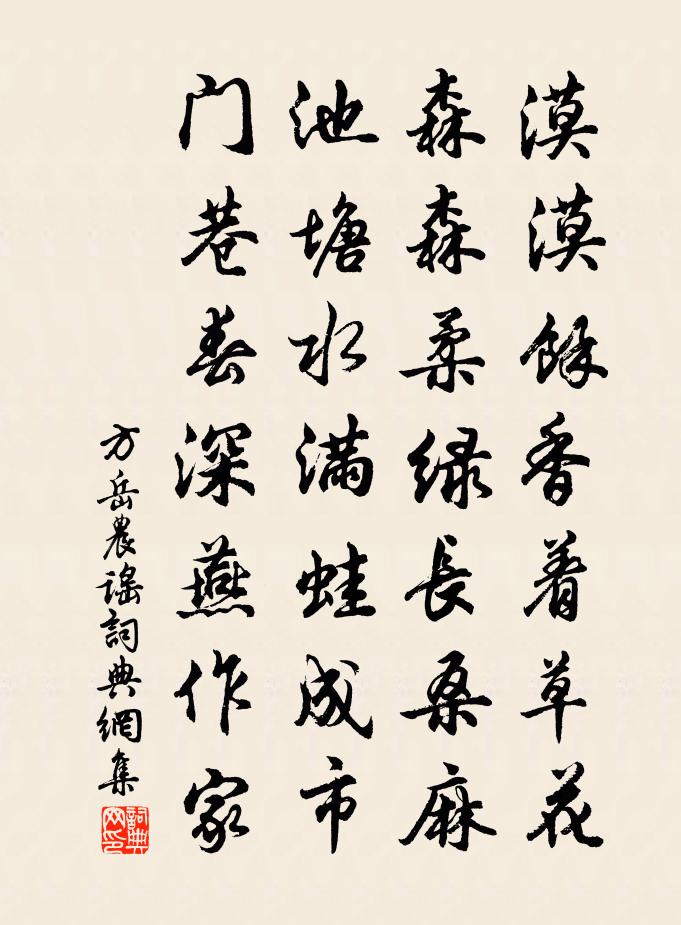 漠漠餘香着草花
森森柔緑長桑麻
池塘水滿蛙成市
门巷春深燕作家
方岳農謡詞典網集
詞典网印